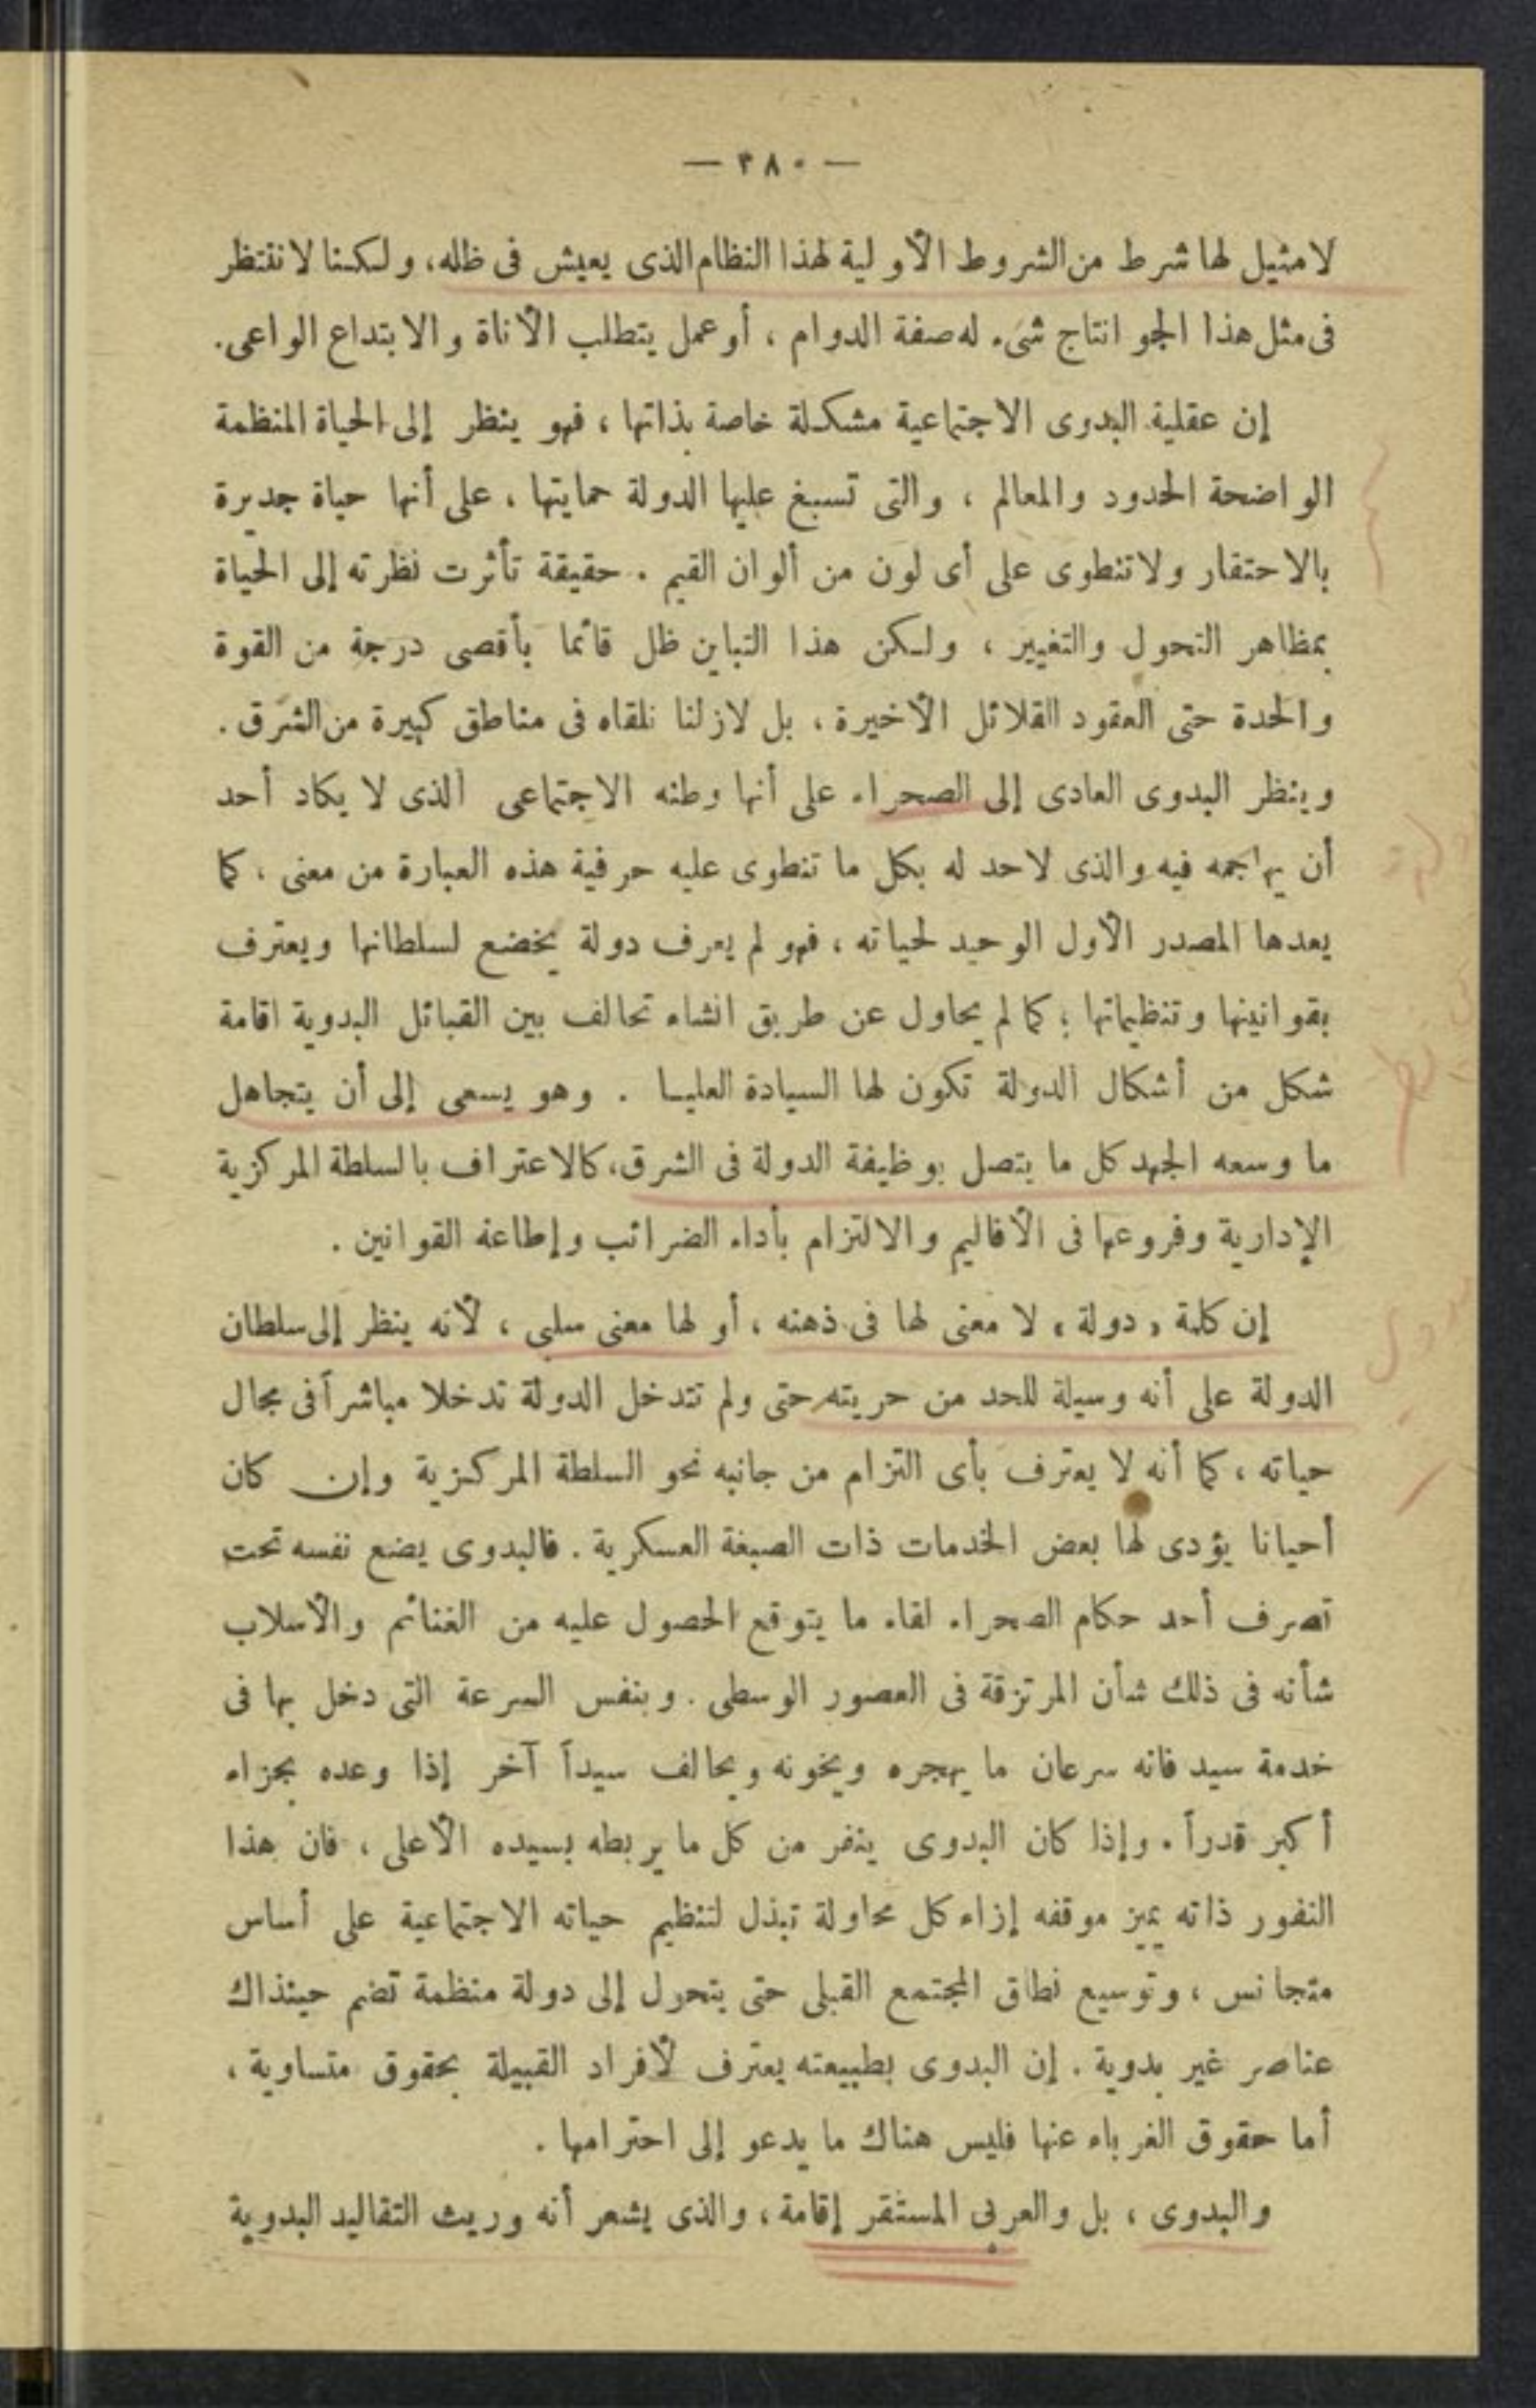 — ٣٨٠ —
لا مثيل لها شرط من الشروط الأولية لهذا النظام الذى يعيش فى ظله، ولكننا لا ننتظر
فى مثل هذا الجو انتاج شىء له صفة الدوام ، أو عمل يتطلب الأناة والابتداع الواعى.
إن عقلية البدوى الاجتماعية مشكلة خاصة بذاتها ، فهو ينظر إلى الحياة المنظمة
الواضحة الحدود والمعالم ، والتى تسبغ عليها الدولة حمايتها ، على أنها حياة جديرة
بالاحتقار ولا تنطوى على أى لون من ألوان القيم . حقيقة تأثرت نظرته إلى الحياة
بمظاهر التحول والتغيير ، ولكن هذا التباين ظل قائما بأقصى درجة من القوة
والحدة حتى العقود القلائل الأخيرة ، بل لازلنا نلقاه فى مناطق كبيرة من الشرق .
وينظر البدوى العادى إلى الصحراء على أنها وطنه الاجتماعى الذى لا يكاد أحد
أن يهاجمه فيه والذى لا حد له بكل ما تنطوى عليه حرفية هذه العبارة من معنى ، كما
يعدها المصدر الأول الوحيد لحياته ، فهو لم يعرف دولة يخضع لسلطانها ويعترف
بقوانينها وتنظيماتها ؛ كما لم يحاول عن طريق انشاء تحالف بين القبائل البدوية اقامة
شكل من أشكال الدولة تكون لها السيادة العليا . وهو يسعى إلى أن يتجاهل
ما وسعه الجهد كل ما يتصل بوظيفة الدولة فى الشرق، كالاعتراف بالسلطة المركزية
الإدارية وفروعها فى الأقاليم والالتزام بأداء الضرائب وإطاعة القوانين .
إن كلمة « دولة » لا معنى لها فى ذهنه ، أو لها معنى سلبى ، لأنه ينظر إلى سلطان
الدولة على أنه وسيلة للحد من حريته حتى ولم تتدخل الدولة تدخلا مباشراً فى مجال
حياته ، كما أنه لا يعترف بأى التزام من جانبه نحو السلطة المركزية وإن كان
أحيانا يؤدى لها بعض الخدمات ذات الصبغة العسكرية . فالبدوى يضع نفسه تحت
تصرف أحد حكام الصحراء لقاء ما يتوقع الحصول عليه من الغنائم والأسلاب
شأنه فى ذلك شأن المرتزقة فى العصور الوسطى . وبنفس السرعة التى دخل بها فى
خدمة سيد فانه سرعان ما يهجره ويخونه ويحالف سيداً آخر إذا وعده بجزاء
أكبر قدراً . وإذا كان البدوى ينفر من كل ما يربطه بسيده الأعلى ، فان هذا
النفور ذاته يميز موقفه إزاء كل محاولة تبذل لتنظيم حياته الاجتماعية على أساس
متجانس ، وتوسيع نطاق المجتمع القبلى حتى يتحول إلى دولة منظمة تضم حينذاك
عناصر غير بدوية . إن البدوى بطبيعته يعترف لأفراد القبيلة بحقوق متساوية ،
أما حقوق الغرباء عنها فليس هناك ما يدعو إلى احترامها .
والبدوى ، بل والعربى المستقر إقامة ، والذى يشعر أنه وريث التقاليد البدوية